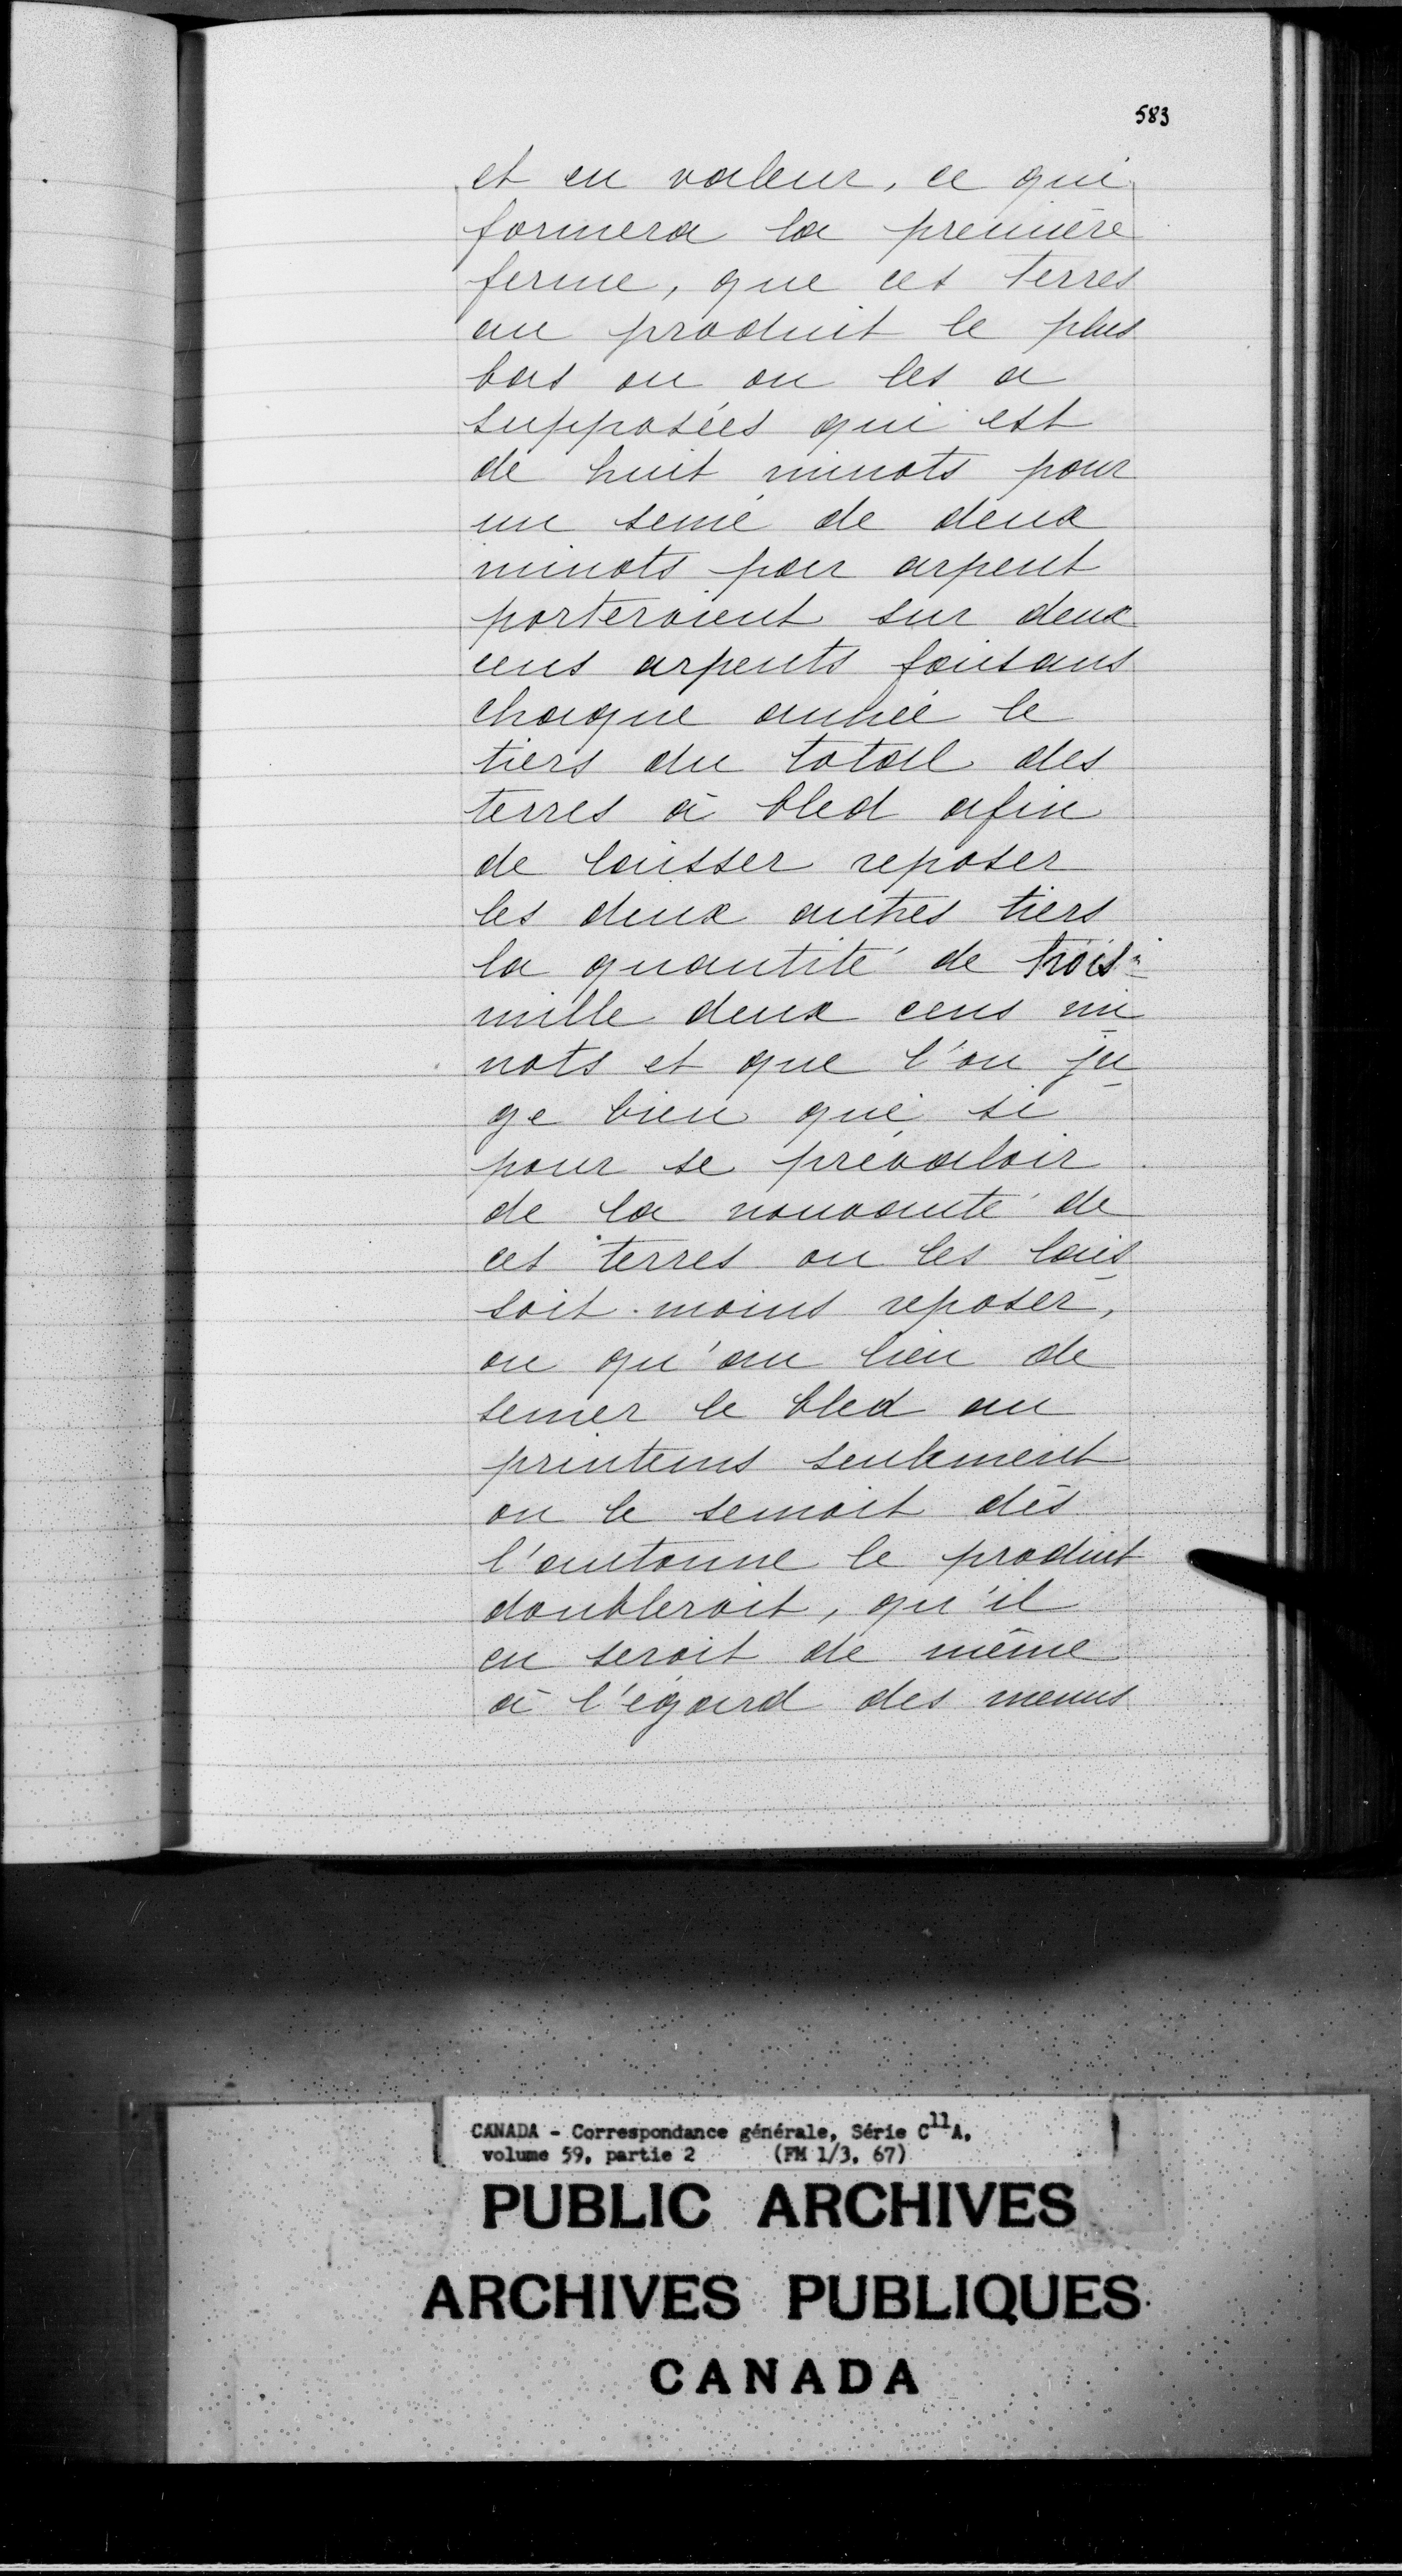 583
et en valeur, ce qui
formera la première
ferme, que ces terres
au produit le plus
bas ou on les a
supposées qui est
de huit minots pour
un semé de deux
minots par arpent
porteroient sur deux
cens arpents faisans
chaque année le
tiers du total des
terres à bled afin
de laisser reposer
les deux autres tiers
la quantité de trois
mille deux cens mi
nots et que l'on ju
ge bien que si
pour se prévaloir
de la nouvauté de
ces terres on les lais
soit moins reposer,
ou qu'au lieu de
semer le bled au
printems seulement
on le semoit dès
l'automne le produit
doubleroit, qu'il
en seroit de même
à l'égard des menus
CANADA - Correspondance générale, Série C11A,
volume 59, partie 2 (FM 1/3, 67)
PUBLIC ARCHIVES
ARCHIVES PUBLIQUES
CANADA